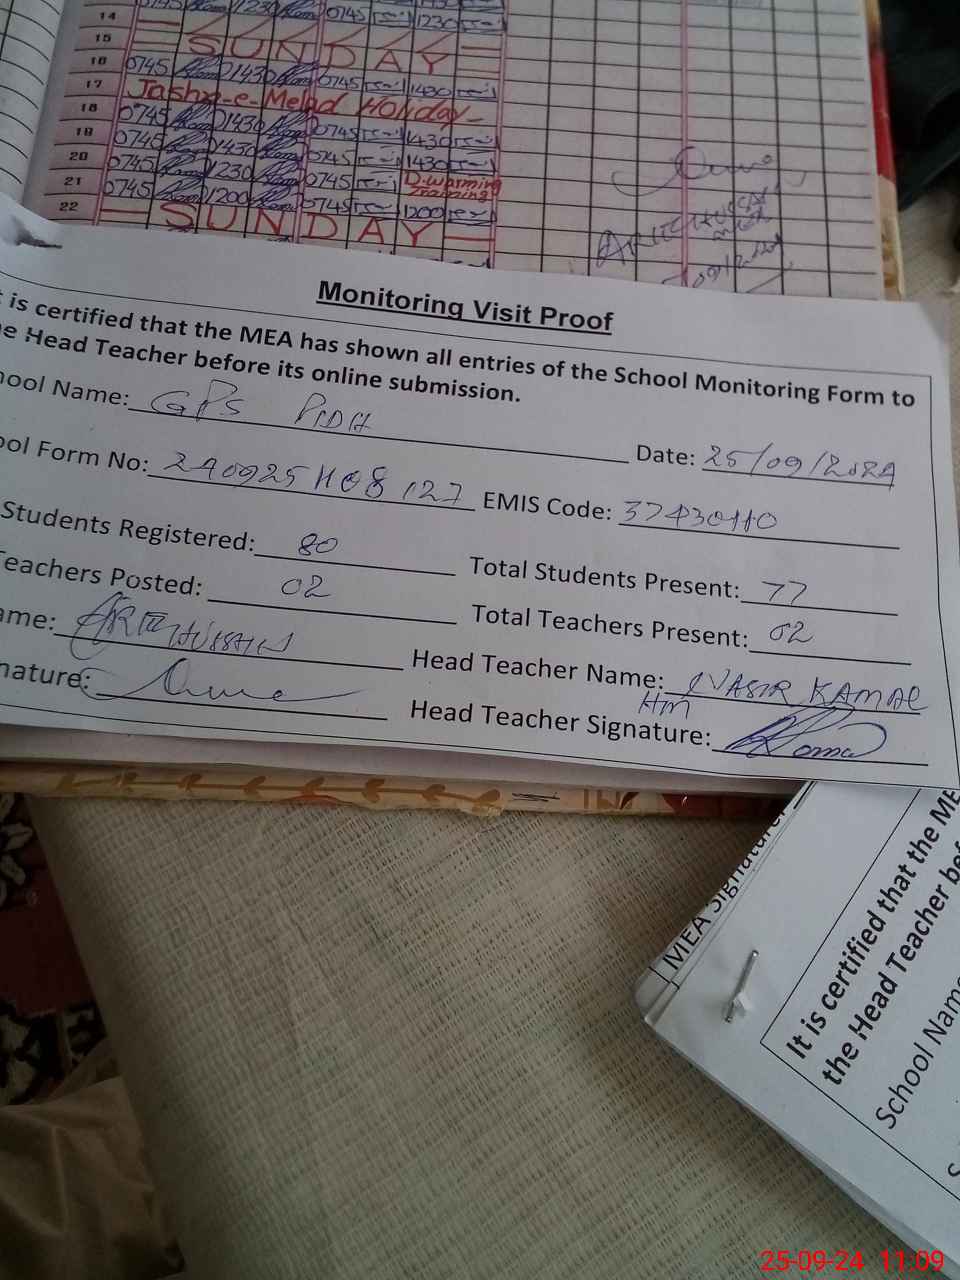 14 0745 1230 0745 1230
15 SUNDAY
16 0745 1430 0745 1430
17 Jashn-e-Melad Holiday
18 0745 1430 0745 1430
19 0745 1430 0745 1430
20 0745 1230 0745 D.warming Training
21 0745 1200 0745 1200
22 SUNDAY
Monitoring Visit Proof
t is certified that the MEA has shown all entries of the School Monitoring Form to
e Head Teacher before its online submission.
hool Name: GPS PIDH
Date: 25/09/2024
ool Form No: 240925H08127 EMIS Code: 37430110
Students Registered: 80 Total Students Present: 77
eachers Posted: 02 Total Teachers Present: 02
ame: Head Teacher Name: NASIR KAMAL
HM
nature: Head Teacher Signature:
MEA Signature:
It is certified that the ME
the Head Teacher bef
School Name
S
25-09-24 11:09